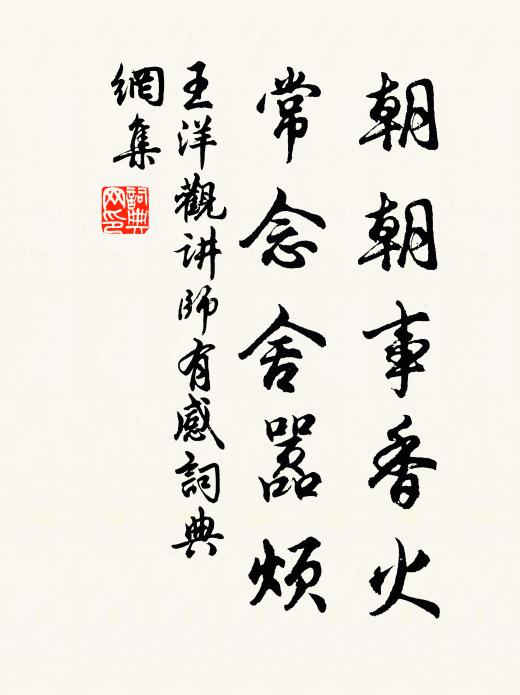 朝朝事香火
常念舍嚣烦
王洋觀讲師有感詞典
網集
詞典网印